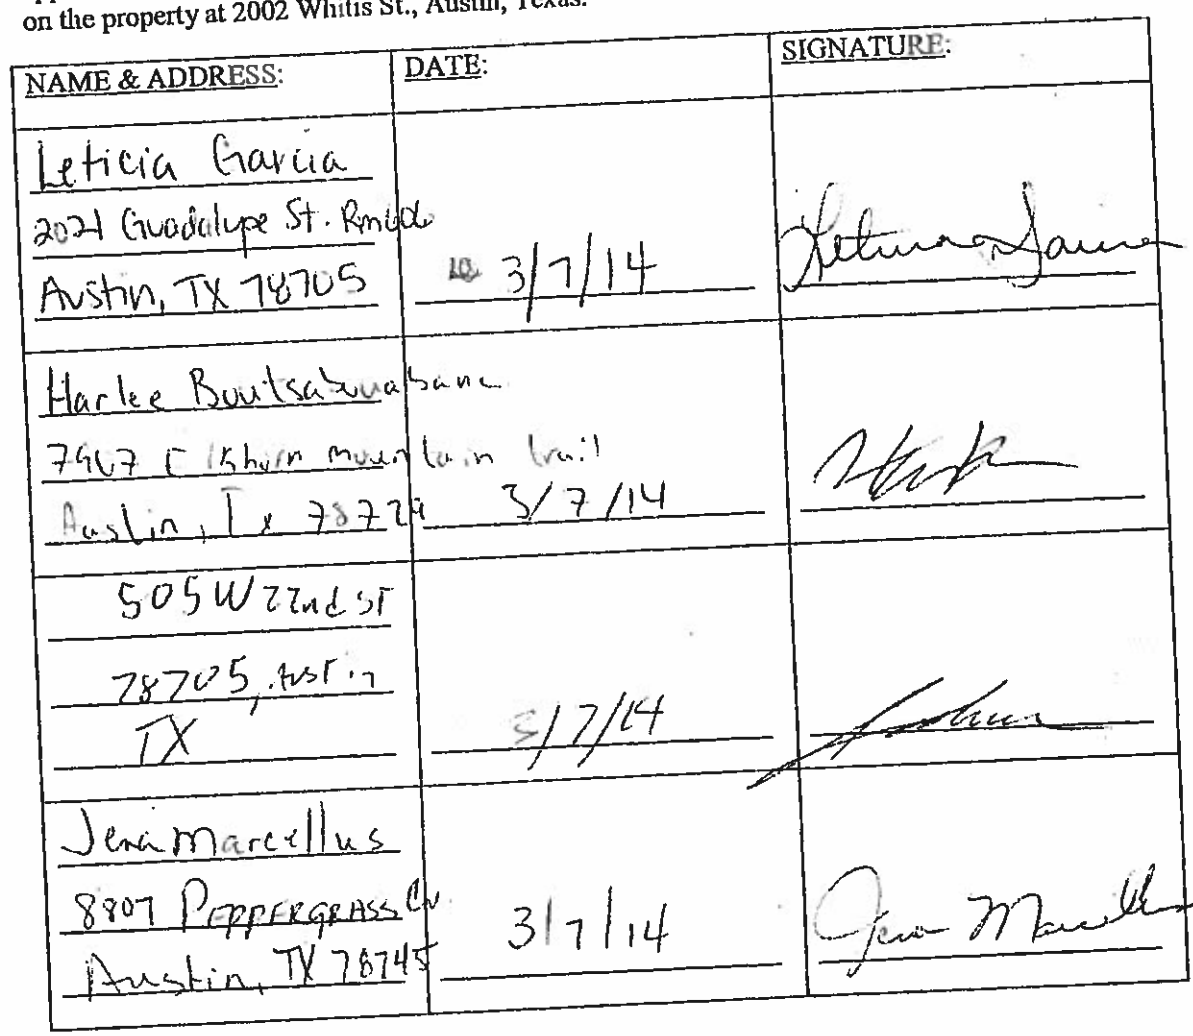 on the property at 2002 Whitis St., Austin, Texas.
NAME & ADDRESS: DATE: SIGNATURE:
Leticia Garcia
2021 Guadalupe St. Rm
Austin, TX 78705 3/7/14 Leticia Garcia
Harlee
Elkhorn mountain trail
Austin, Tx 78729 3/7/14
505 W 22nd ST
78705, Austin
TX 3/7/14
Jena Marcellus
8807 PEPPERGRASS CV
Austin, TX 78745 3/7/14 Jena Marcellus